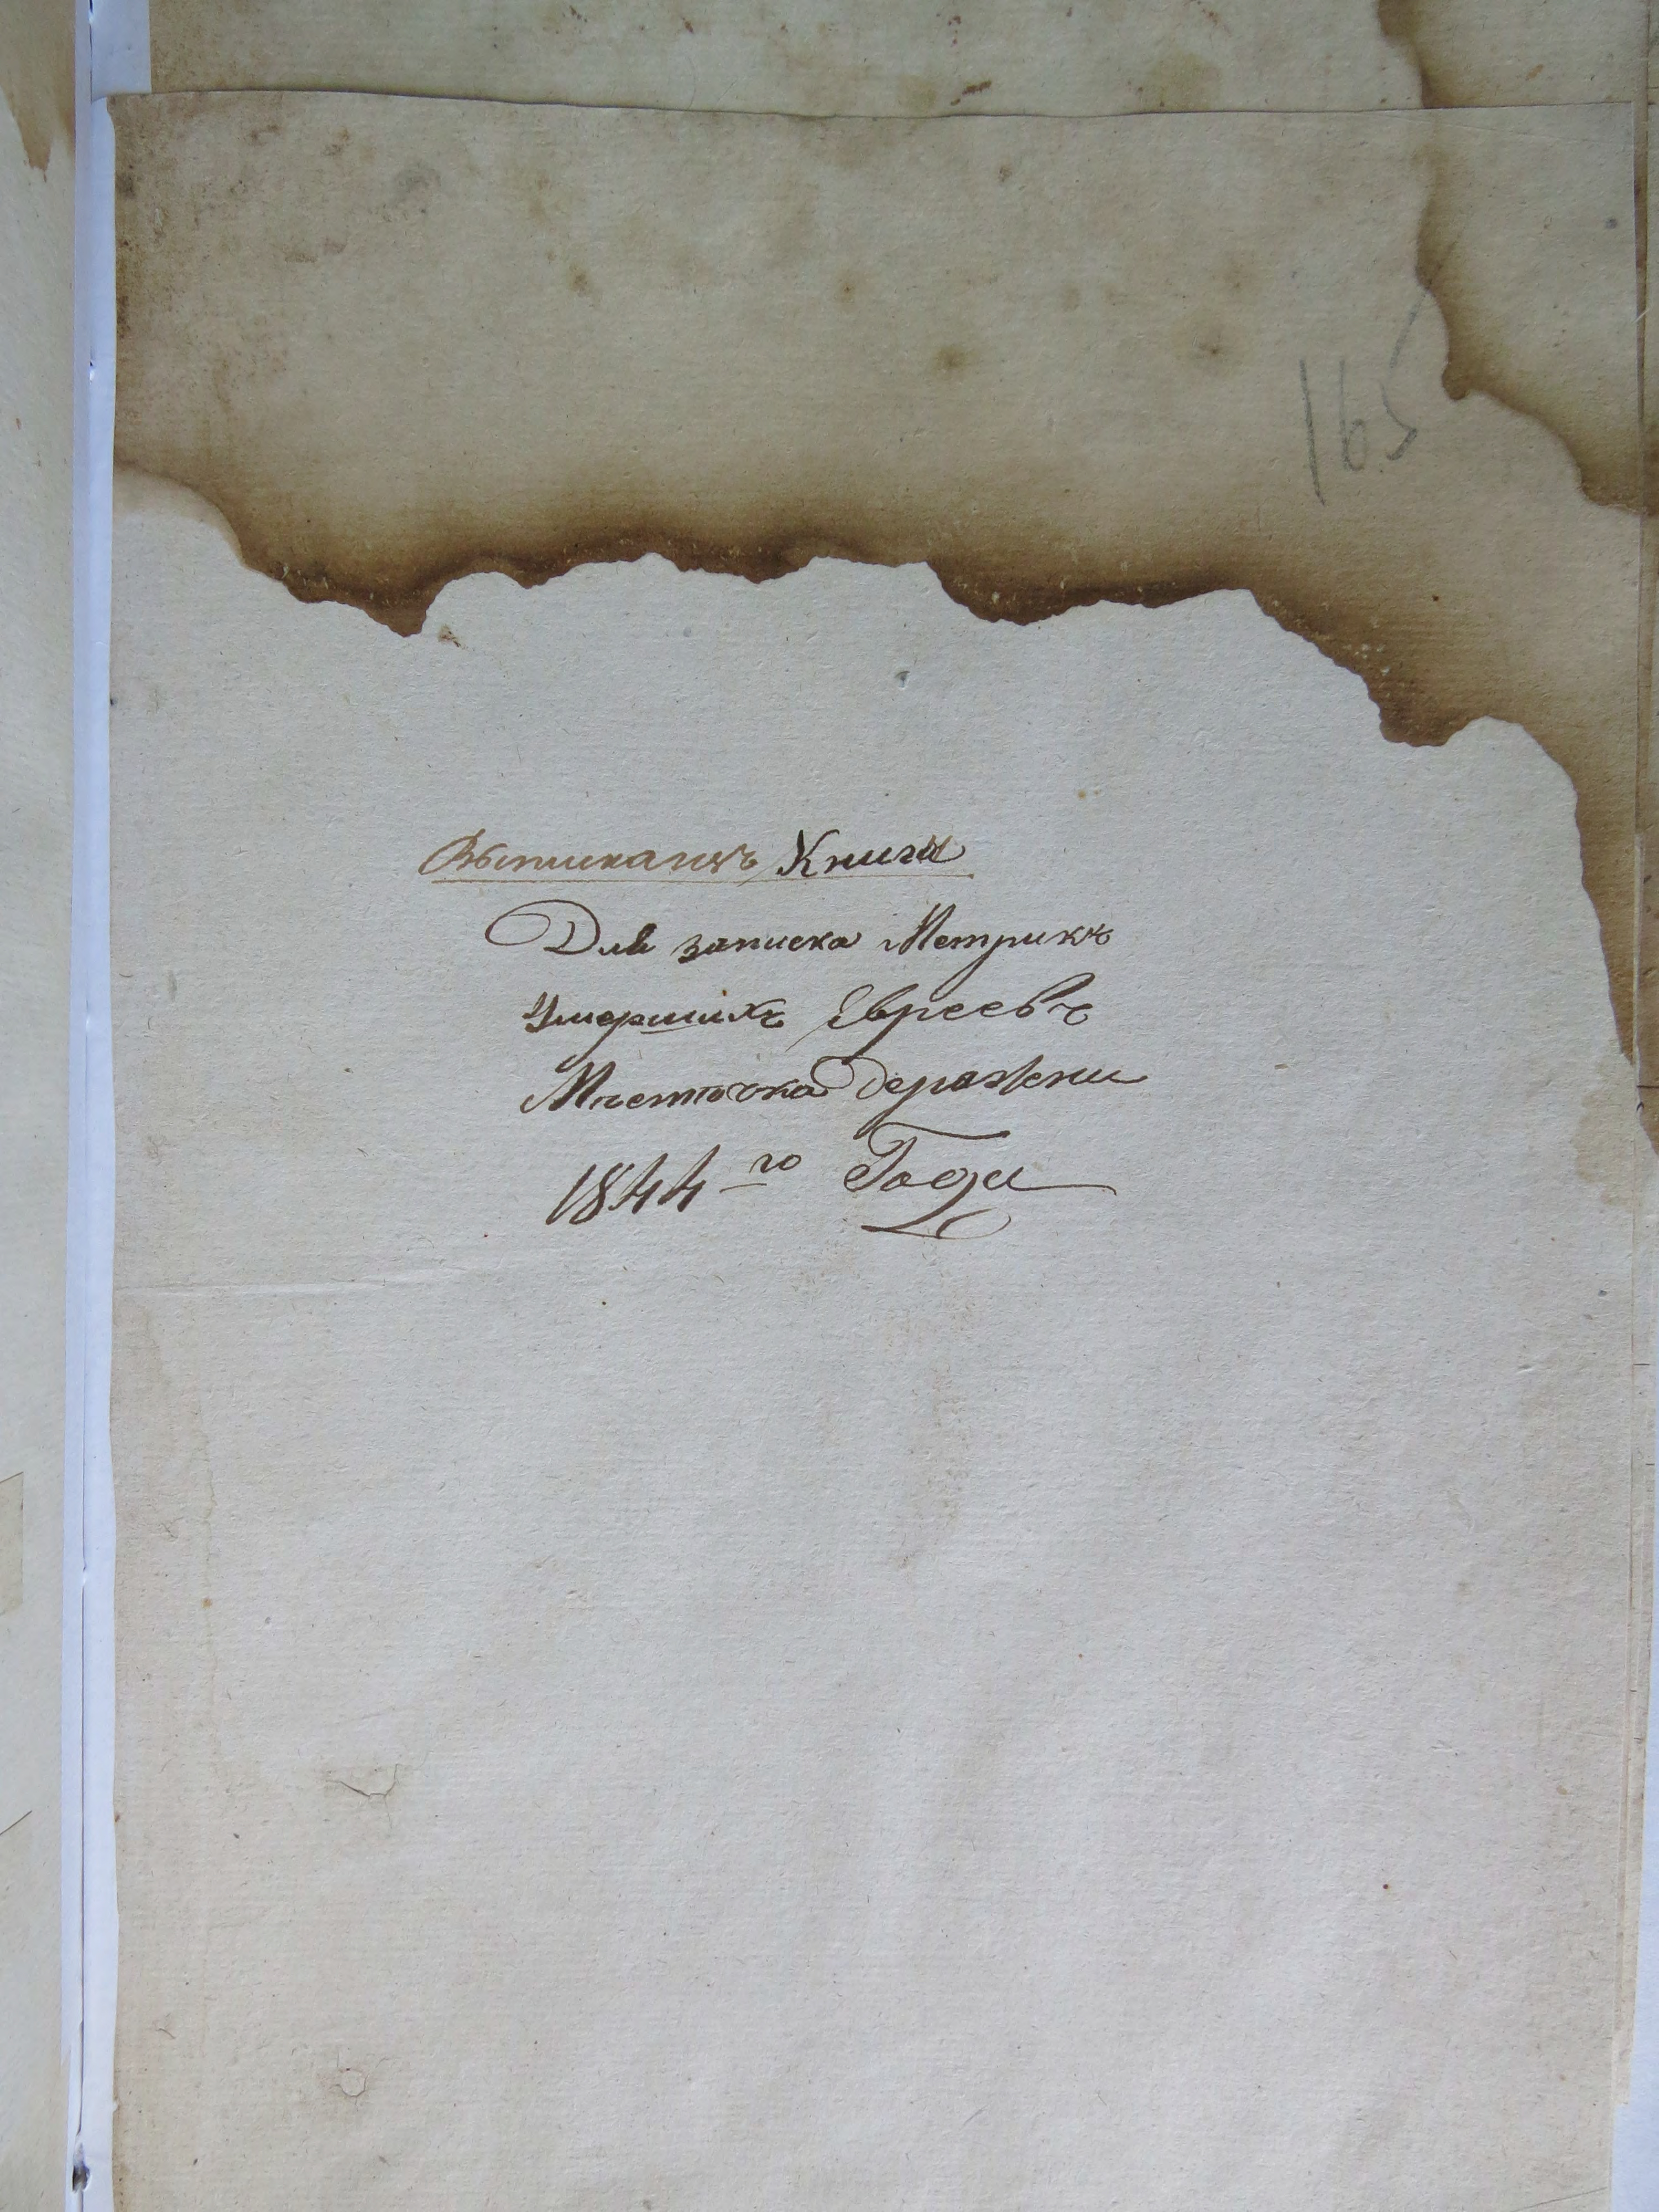 165
Выписка изъ Книги
Для записка Метрикъ
Умершихъ Евреевъ
Местечка Деражни
1844го Года